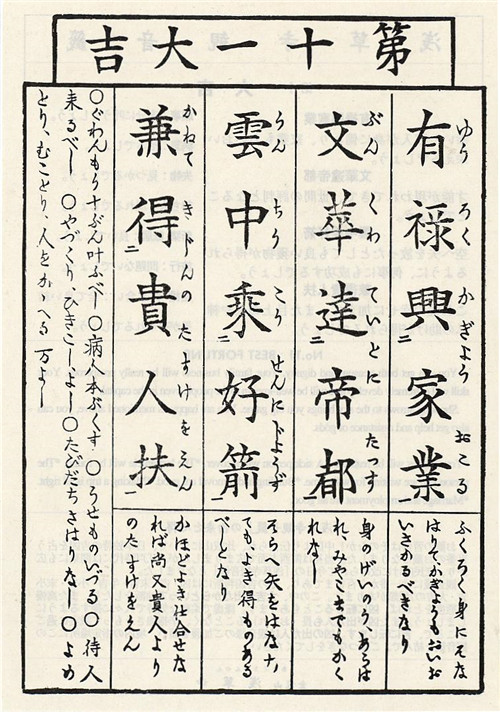 第十一大吉
有禄興二家業一
ゆう ろく かぎよう おこ
文華達二帝都一
ぶん くわ いとに たつす
雲中乗二好箭一
うん ちう こう せんにじようず
兼得二貴人扶一
かねて きじんの たすけを えん
ふくろく身にそな
はつてかぎよもおいお
いさかるべきなり
身のげいのうあらは
れ、みやこまでもかく
れなし
そらへ矢をはなす、
てもよき得ものある
べしとなり
かほどよき仕合せな
れば尚又貴人より
のたすけをえん
〇ぐわんもう十ぶん叶ふべし〇病人本ぶくす、〇うせものいづる〇待人
来るべし〇やづくり、ひきこしよし〇たびだちさはりなし〇よめ
とり、むことり、人をかゝへる万よし